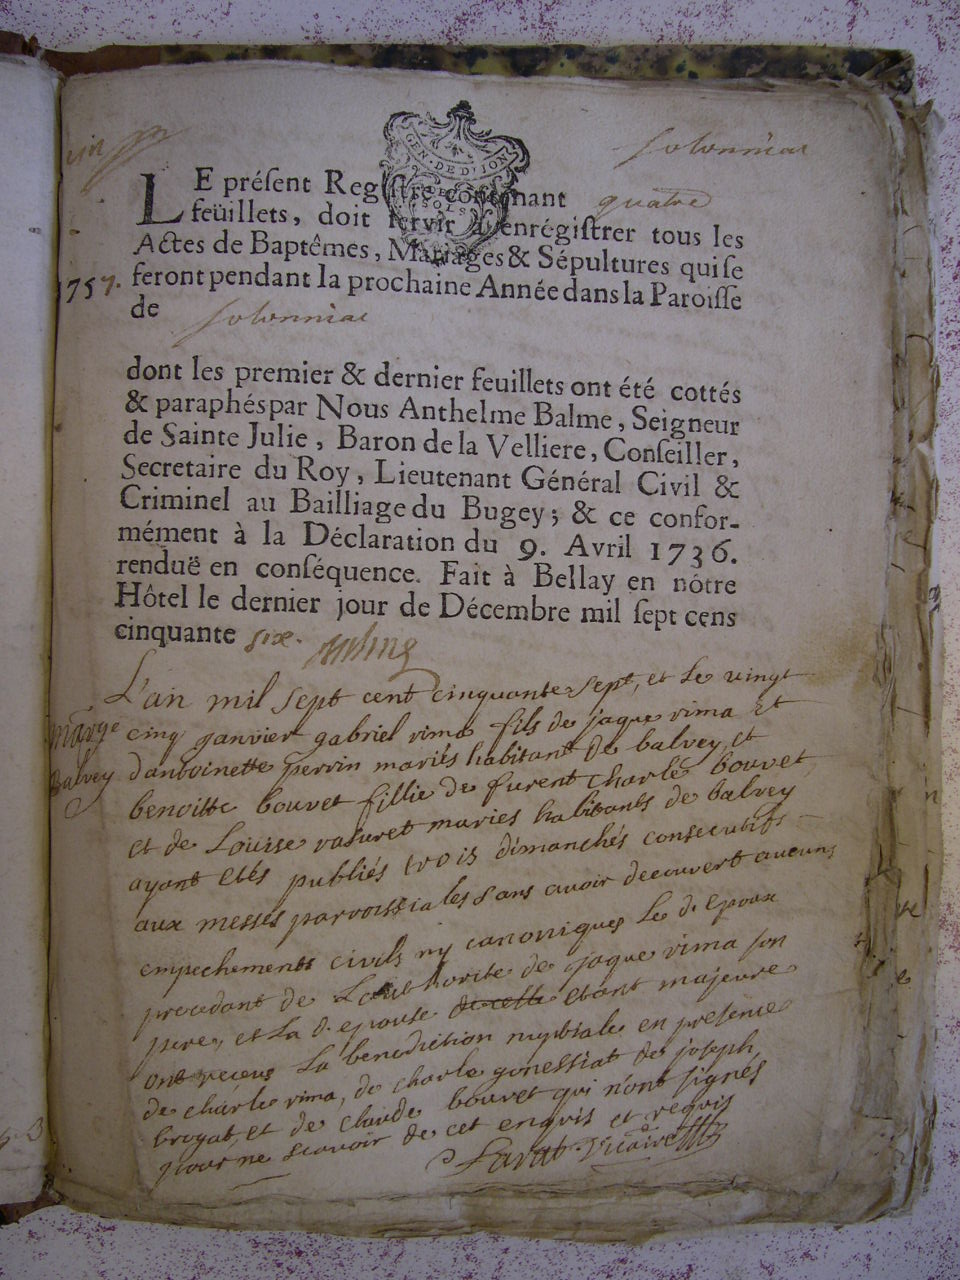 solonniac
GEN. DE DIJON
LE présent Registre contenant quatre
feüillets, doit servir à enrégistrer tous les
Actes de Baptêmes, Mariages & Sépultures qui se
1757. feront pendant la prochaine Année dans la Paroisse
de solonniac
dont les premier & dernier feuillets ont été cottés
& paraphés par Nous Anthelme Balme, Seigneur
de Sainte Julie, Baron de la Velliere, Conseiller,
Secretaire du Roy, Lieutenant Général Civil &
Criminel au Bailliage du Bugey; & ce confor-
mément à la Déclaration du 9. Avril 1736.
renduë en conséquence. Fait à Bellay en nôtre
Hôtel le dernier jour de Décembre mil sept cens
cinquante six.
L'an mil sept cent cinquante sept, et le vingt
marge cinq janvier gabriel rima fils de jaque rima et
Balvey d'antoinette perrin mariés habitant de balvey, et
benoitte bouvet fillie de furent charle bouvet,
et de Louise ravuret maries habitants de balvey
ayant etés publiés trois dimanchés consecutifs
aux messes parroissiales sans avoir decouvert aucuns
empechements civils ny canoniques le d. epoux
procedant de L'authorite de jaque rima son
pere, et la d. epouse de celle etant majeure
ont receus la benediction nuptiale en presence
de charle rima, de charle gonessiat de joseph
broyat, et de claude bouvet qui n'ont signés
pour ne scavoir de cet enquis et requis
Larat vicaire